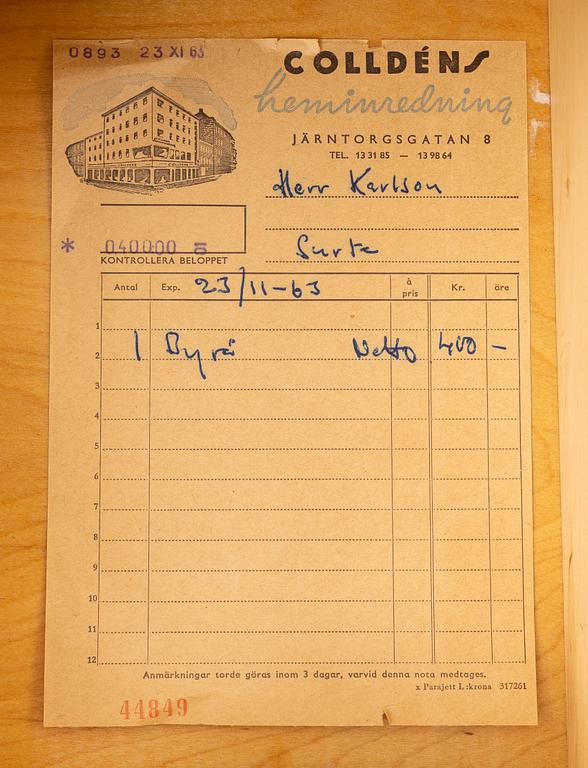 0893 23 XI 63
COLLDÉNS
heminredning
JÄRNTORGSGATAN 8
TEL. 13 31 85 — 13 98 64
Herr Karlson
Surte
* 0400.00
KONTROLLERA BELOPPET
Antal Exp. 23/11-63 à pris Kr. öre
1
2 1 Byrå Netto 400 –
3
4
5
6
7
8
9
10
11
12
Anmärkningar torde göras inom 3 dagar, varvid denna nota medtages.
x Parajett L:krona 317261
44849